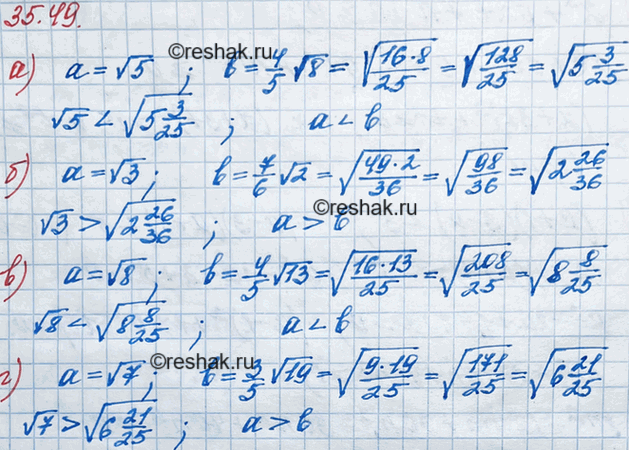 35.49.
©reshak.ru
а) a = √5 ; b = 4/5 √8 = √(16·8/25) = √(128/25) = √(5 3/25)
√5 < √(5 3/25) ; a < b
б) a = √3 ; b = 7/6 √2 = √(49·2/36) = √(98/36) = √(2 26/36)
©reshak.ru
√3 > √(2 26/36) ; a > b
в) a = √8 ; b = 4/5 √13 = √(16·13/25) = √(208/25) = √(8 8/25)
√8 < √(8 8/25) ; a < b
©reshak.ru
г) a = √7 ; b = 3/5 √19 = √(9·19/25) = √(171/25) = √(6 21/25)
√7 > √(6 21/25) ; a > b